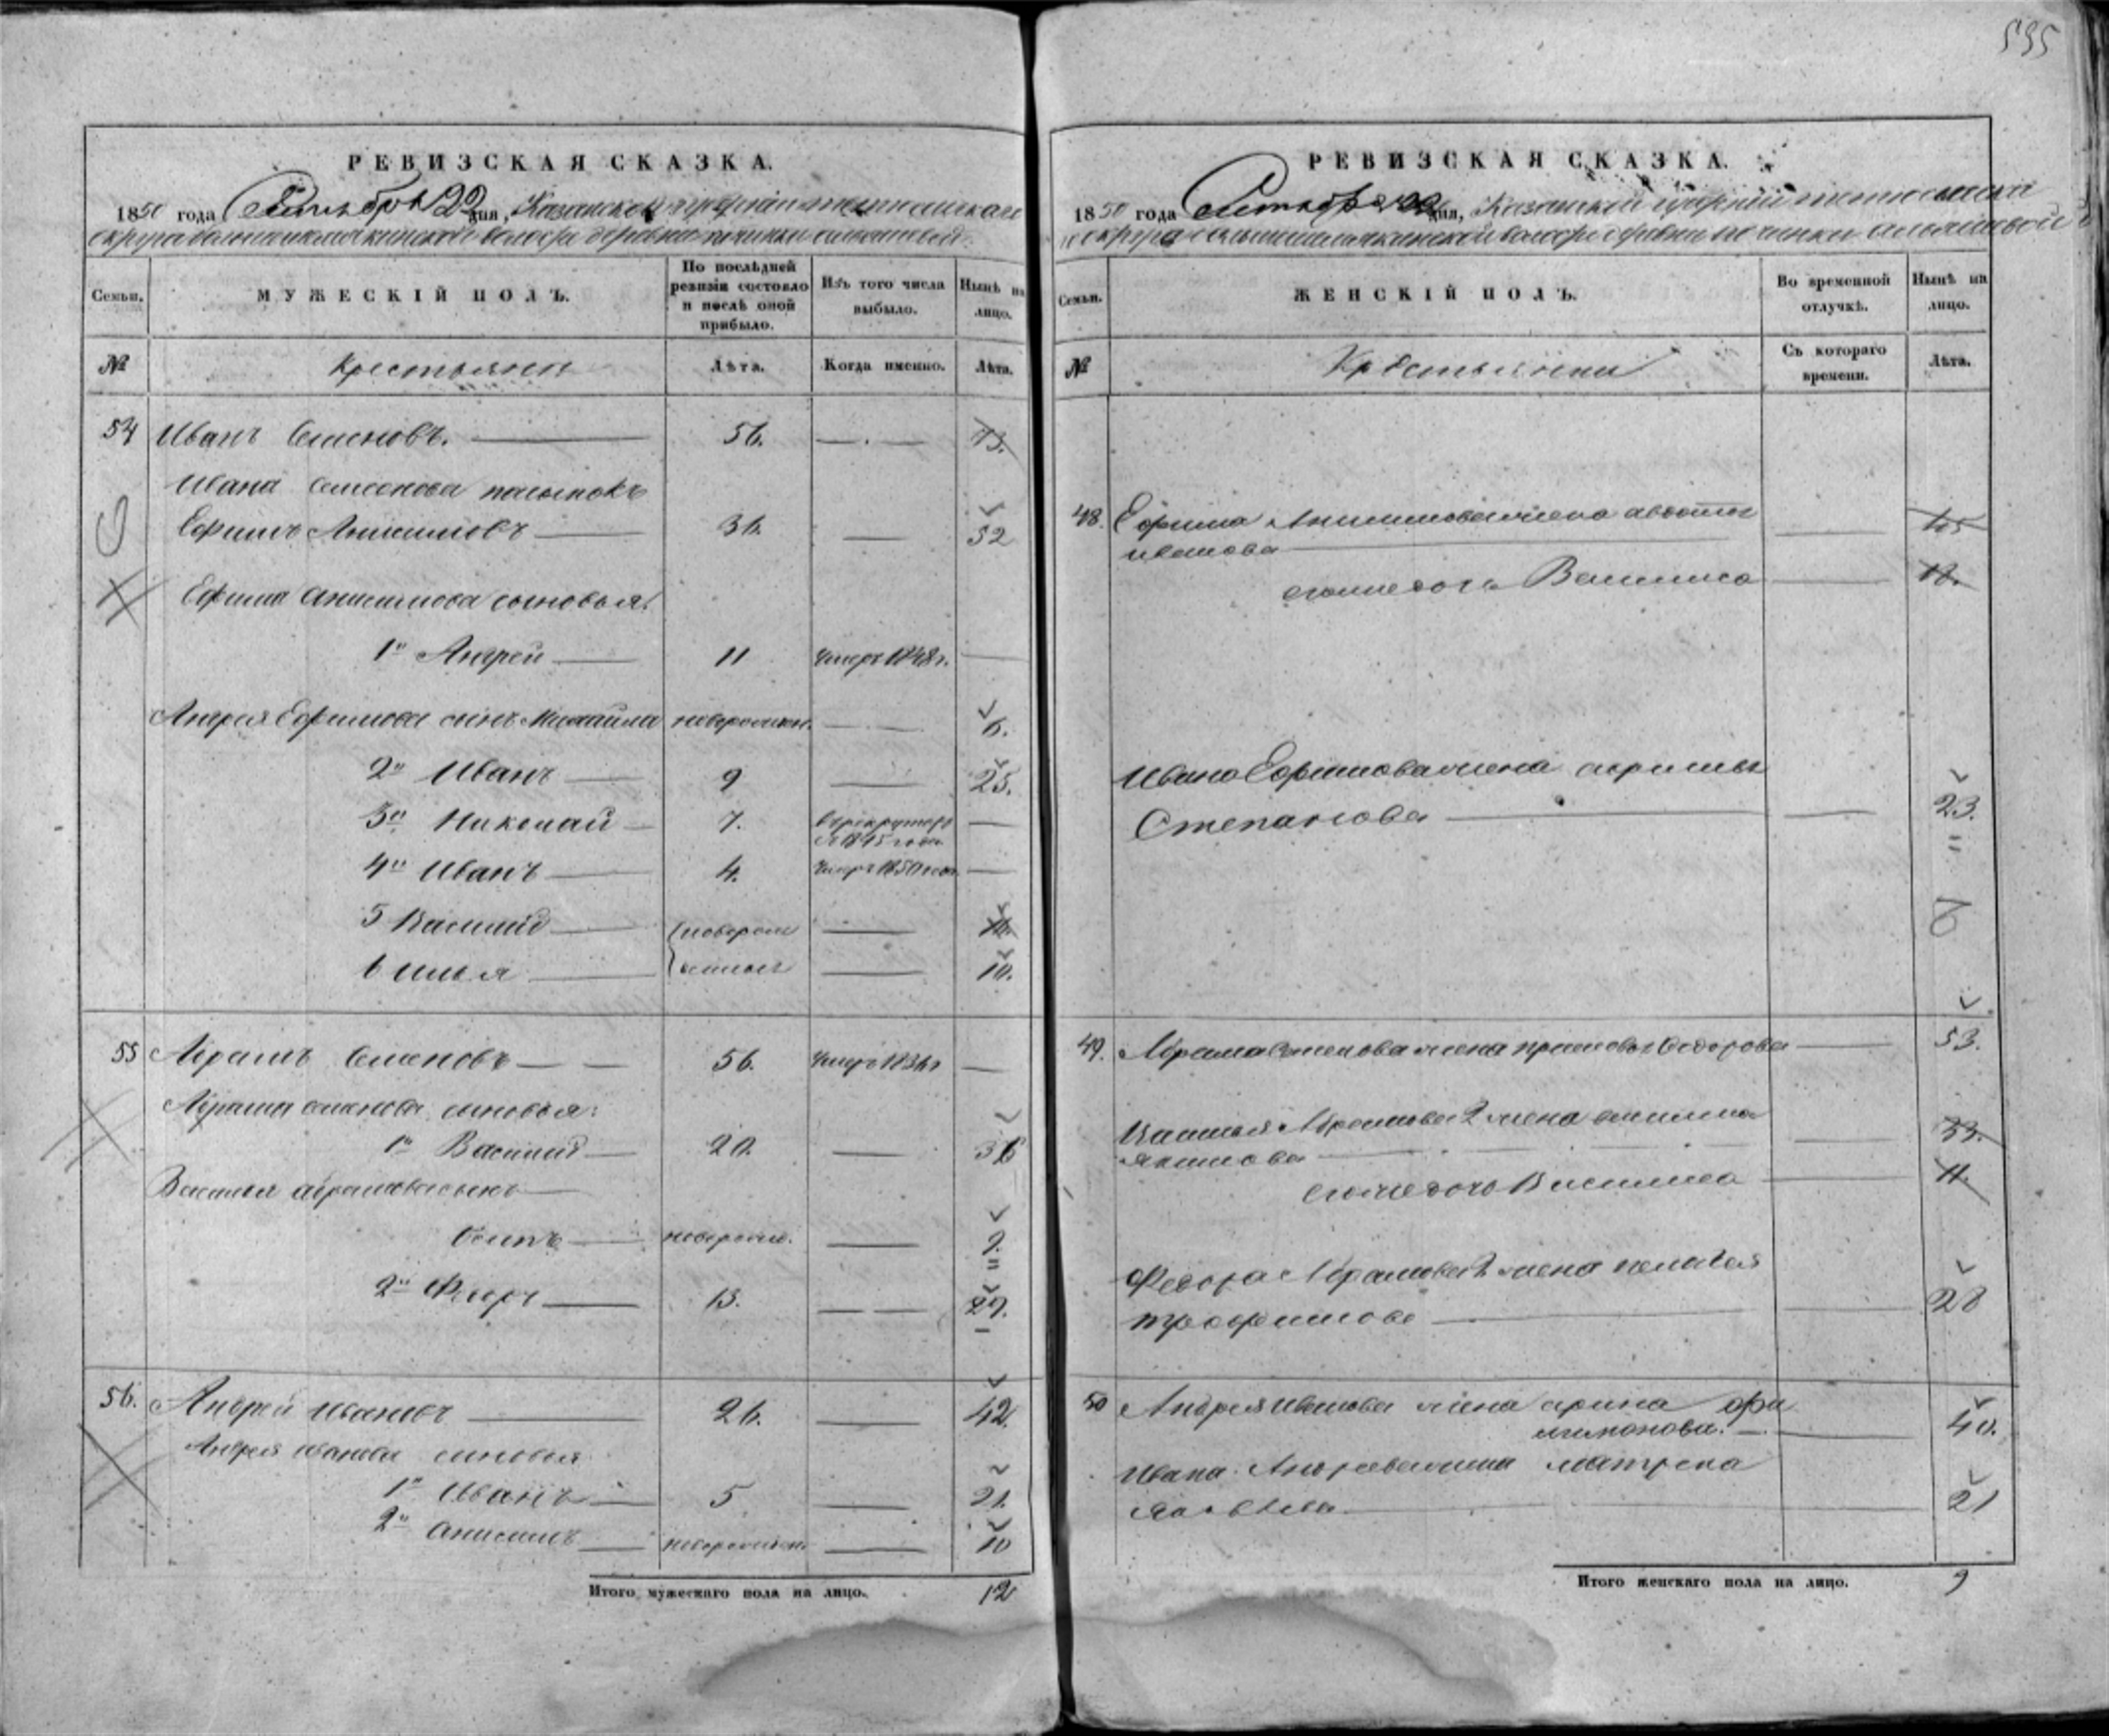 535
РЕВИЗСКАЯ СКАЗКА.
1850 года Сентября 22 дня, Казанской губернии
округа волости деревни починки
Семьи.
МУЖЕСКІЙ ПОЛЪ.
По послѣдней ревизіи состояло и послѣ оной прибыло.
Изъ того числа выбыло.
Нынѣ на лицо.
№
Крестьяне
Лѣта.
Когда именно.
Лѣта.
54 Иванъ Семеновъ. 56.
Ивана Семенова пасынокъ
Ефимъ Анисимовъ 36. 52
Ефима Анисимова сыновья:
1й Андрей 11 умеръ 1848 г.
Андрея Ефимова сынъ Михайла новорожден. 6.
2й Иванъ 9 25.
3й Николай 7. въ рекруты в 1845 года
4й Иванъ 4. умеръ 1850 года
5 Василий новорож
6 Илья денные 10.
55 Абрамъ Семеновъ 56. умеръ 1836 г
Абрама Семенова сыновья:
1й Василий 20. 36
Василья Абрамова сынъ
Осипъ новорожд. 9.
2й Федоръ 13. 29.
56. Андрей Ивановъ 26. 42.
Андрея Иванова сыновья
1й Иванъ 5 21.
2й Анисимъ новорожден 10
Итого мужескаго пола на лицо. 12
РЕВИЗСКАЯ СКАЗКА.
1850 года Сентября 22 дня, Казанской губернии
округа волости деревни починки
Семьи.
ЖЕНСКІЙ ПОЛЪ.
Во временной отлучкѣ.
Нынѣ на лицо.
№
Крестьянки
Съ котораго времени.
Лѣта.
48. Ефима Анисимова жена авдотья 45
иванова
его же дочь Василиса 18.
Ивана Ефимова жена акрина
Степанова 23.
49. Абрама Семенова жена Федорова 53.
Василья Абрамова 2 жена 33.
якимова
его же дочь Василиса 11.
Федора Абрамова жена пелагея
трофимова 28
50 Андрея Иванова жена арина фи
лимонова. 40.
Ивана Андреева жена матрена
яковлева 21
Итого женскаго пола на лицо. 9